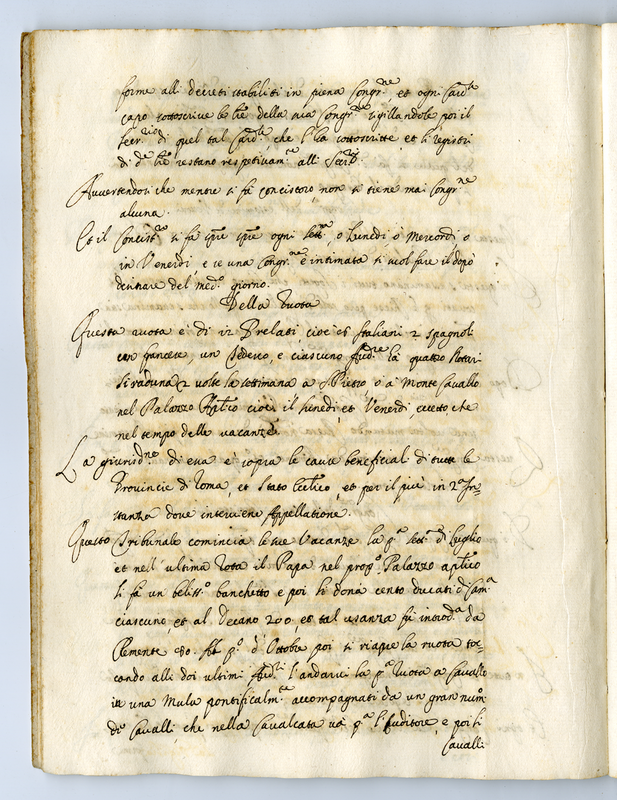 forme alli decreti stabiliti in piena Congr.ne et ogni Card.le
capo sottoscrive le l.re della sua Congr.ne sigillandole poi il
Secr.rio di quel tal Card.le che l'ha sottoscritte et li registri
di d.e l're restano respetivam.te alli Secr.ri
Avvertendosi che mentre si fa concistoro non si tiene mai Congr.ne
alcuna.
Et il Concist.ro si fa ogni sett.na, o Lunedi, o Mercordi, o
in Venerdi, e se una Congr.ne è intimata si vuol fare il dopo
denare del med.o giorno.
Della Ruota
Questa ruota è di 12 Prelati, cioè 8 Italiani 2 spagnoli
un francese, un Tedesco, e ciascuno Aud.re ha quattro Notari
Si raduna 2 volte la settimana a S. Pietro, o a Monte Cavallo
nel Palazzo Ap.lico cioè il lunedi, et Venerdi eccetto che
nel tempo delle vacanze
La giurisd.ne di essa è sopra le cause beneficiali di tutte le
Provincie di Roma, et Stato Eccl.ico, et per il più in 2.a In=
stanza dove interviene Appellatione.
Questo Tribunale comincia le sue Vacanze la p.a sett.a di Luglio
et nell'ultima Rota il Papa nel prop.o Palazzo ap.lico
li fà un bellis.o banchetto e poi li dona cento ducati di Cam.a
ciascuno, et al Decano 200 et tal usanza fu introd.a da
Clemente 8o. Al p.o d'Ottobre poi si riapre la ruota toc=
cando alli doi ultimi Aud.ri l'andarvi la p.a Ruota a Cavallo
in una Mula pontificalm.te accompagnati da un gran num.o
di Cavalli, che nella Cavalcata va p.a l'Auditore, e poi li
Cavalli